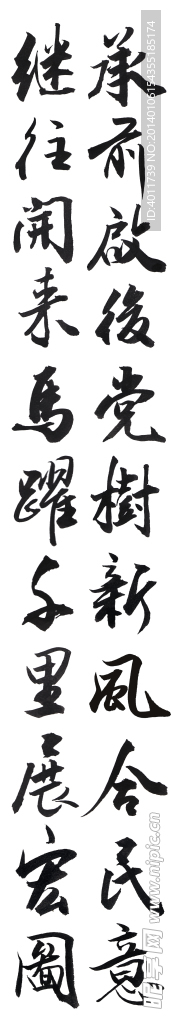 承前啟後党樹新風合民意
継往開来馬躍千里展宏圖
ID:4011739 NO:20140106154355185174
昵享网 www.nipic.cn